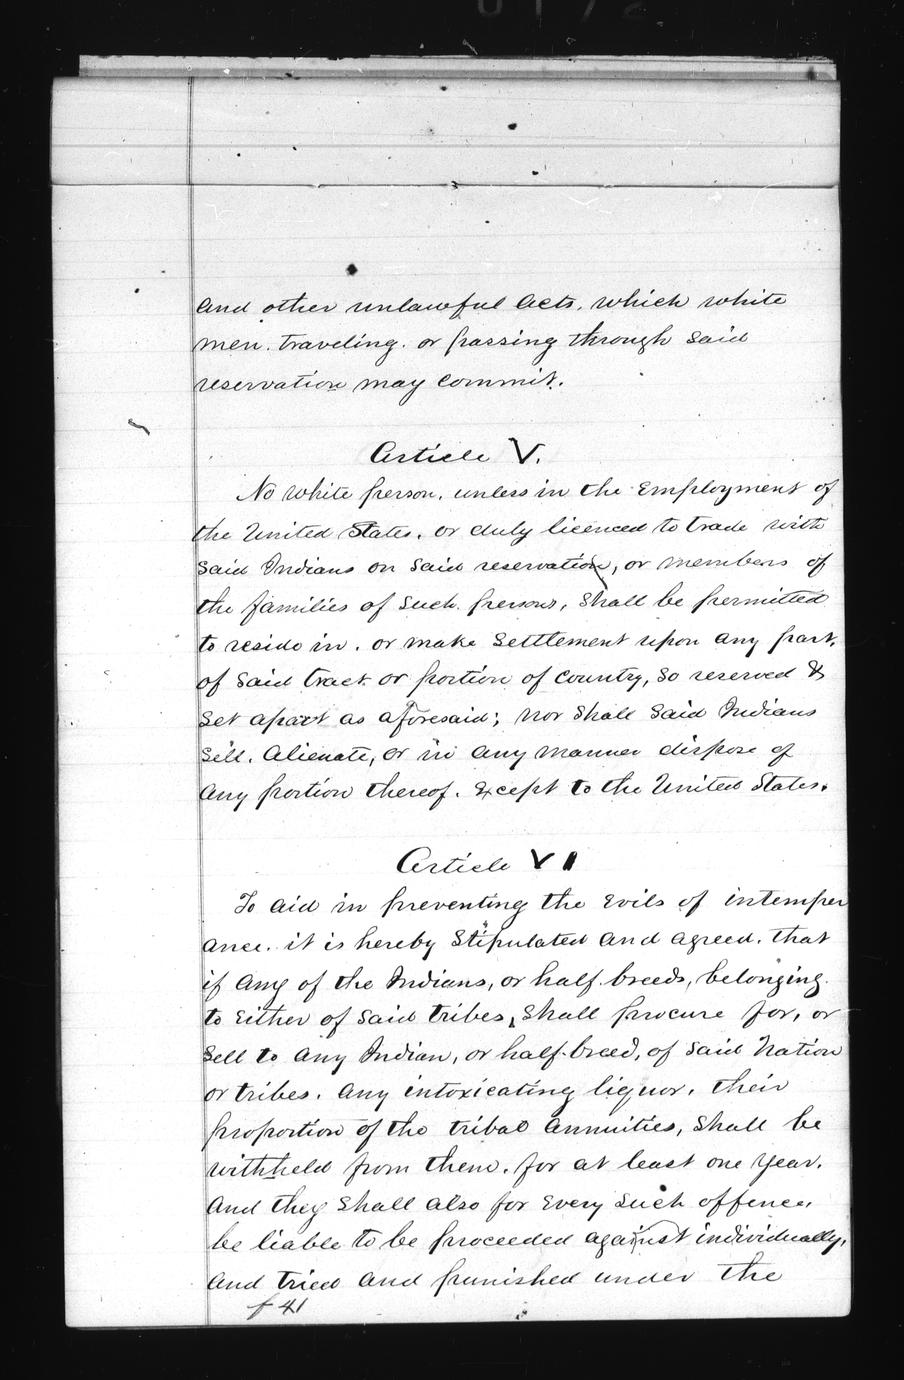 and other unlawful acts, which white
men. traveling. or passing through said
reservation may commit.
Article V.
No white person, unless in the Employment of
the United States, or duly licenced to trade with
said Indians on said reservation, or members of
the families of such persons, shall be permitted
to reside in, or make settlement upon any part,
of said tract or portion of country, so reserved &
set apart as aforesaid; nor shall said Indians
sell, alienate, or in any manner dispose of
any portion thereof. Except to the United States.
Article VI
To aid in preventing the Evils of intemper
ance. it is hereby stipulated and agreed. that
if any of the Indians, or half-breeds, belonging
to Either of said tribes, shall procure for, or
sell to any Indian, or half-breed, of said Nation
or tribes. any intoxicating liquor, their
proportion of the tribal annuities, shall be
withheld from them, for at least one year.
And they shall also for Every such offence,
be liable to be proceeded against individually,
and tried and punished under the
f 41